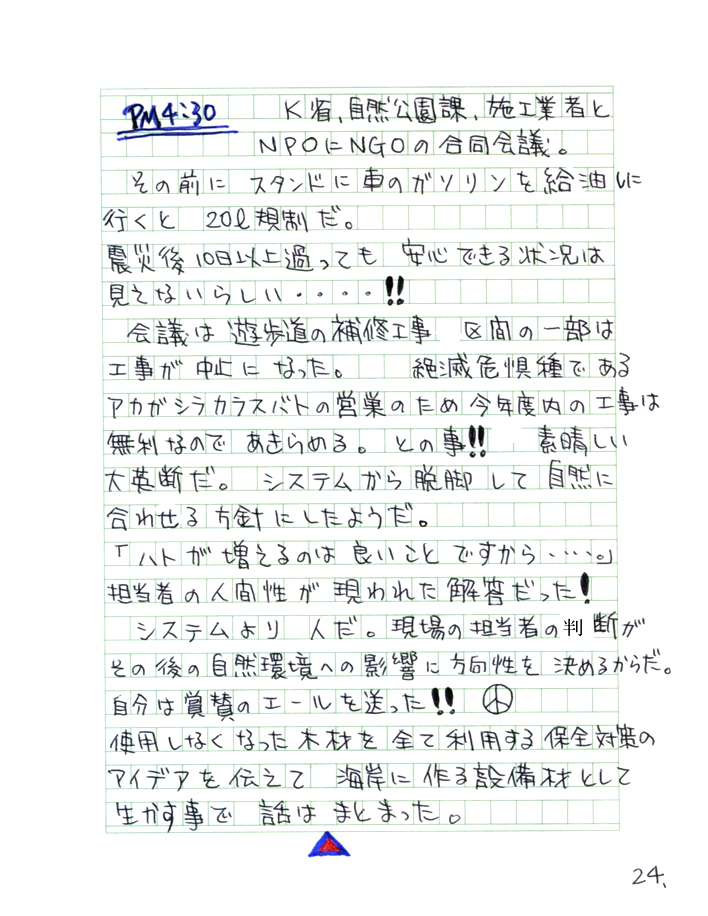 PM4:30　K省、自然公園課、施工業者と
NPOにNGOの合同会議。
その前に スタンドに車のガソリンを給油しに
行くと 20ℓ規制だ。
震災後10日以上過っても 安心できる状況は
見えないらしい・・・・!!
会議は遊歩道の補修工事 区間の一部は
工事が中止になった。 絶滅危惧種である
アカガシラカラスバトの営巣のため今年度内の工事は
無利なので あきらめる。との事!! 素晴しい
大英断だ。システムから脱脚して自然に
合わせる方針にしたようだ。
「ハトが増えるのは良いことですから・・・・。」
担当者の人間性が現われた解答だった!
システムより 人だ。現場の担当者の判断が
その後の自然環境への影響に方向性を決めるからだ。
自分は賞賛のエールを送った!! ☮
使用しなくなった木材を全て利用する保全対策の
アイデアを伝えて 海岸に作る設備材として
生かす事で 話はまとまった。
24、